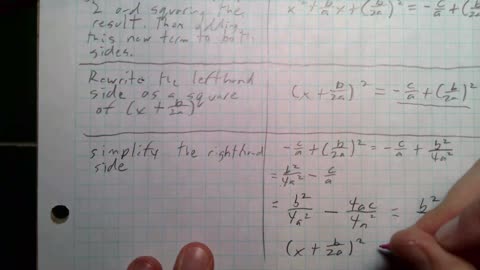 2 and squaring the
result. Then adding
this new term to both
sides.
x² + b/a x + (b/2a)² = -c/a + (b/2a)²
Rewrite the lefthand
side as a square
of (x + b/2a)²
(x + b/2a)² = -c/a + (b/2a)²
simplify the righthand
side
-c/a + (b/2a)² = -c/a + b²/4a²
= b²/4a² - c/a
= b²/4a² - 4ac/4a² = b²
(x + b/2a)²